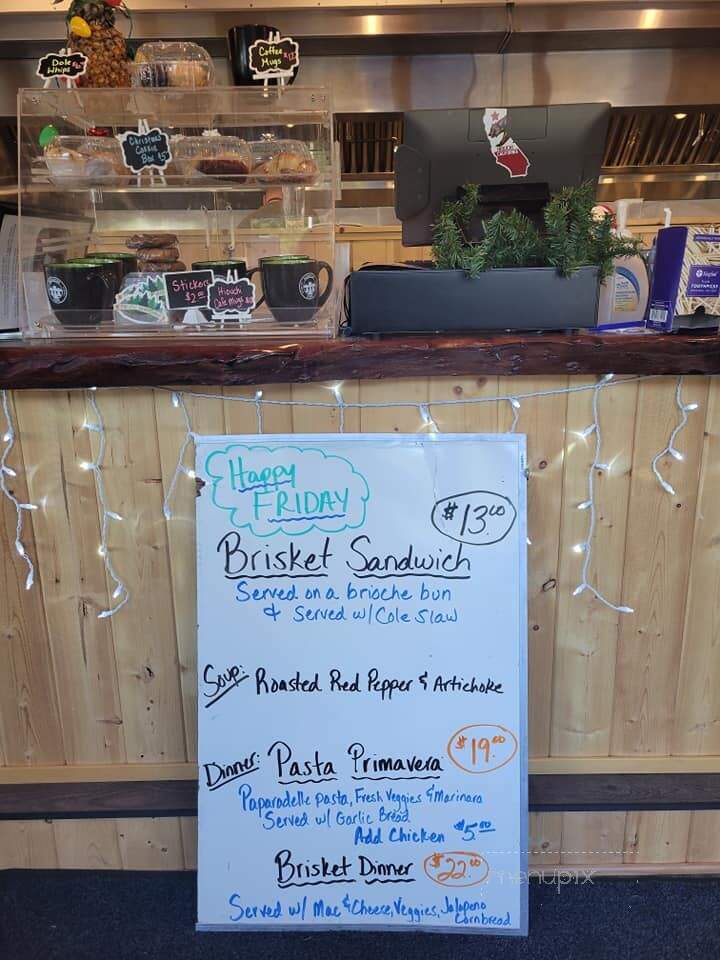 Dole
Whips
Coffee
Mugs
Christmas
Cookie
Box
Stickers
$2.00
Hiouchi
Cafe Mugs
TOOTHPICKS
Happy
FRIDAY
$13.00
Brisket Sandwich
Served on a brioche bun
& Served w/ Cole Slaw
Soup: Roasted Red Pepper & Artichoke
$19.00
Dinner: Pasta Primavera
Paparadelle pasta, Fresh Veggies & Marinara
Served w/ Garlic Bread
Add Chicken $5.00
Brisket Dinner $22.00
menupix
Served w/ Mac & Cheese, Veggies, Jalapeno
Cornbread